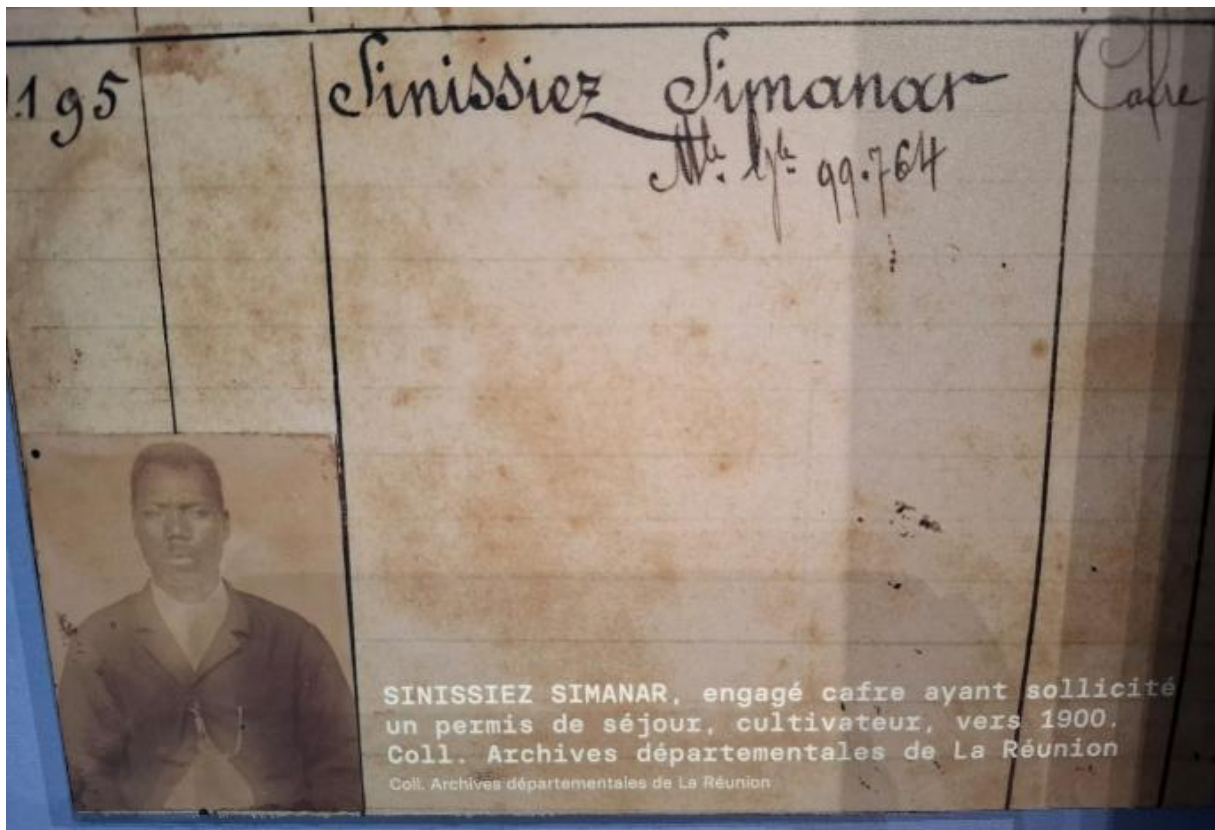 195 Sinissiez Simanar Cafre
Mle. Gle. 99.764
SINISSIEZ SIMANAR, engagé cafre ayant sollicité
un permis de séjour, cultivateur, vers 1900.
Coll. Archives départementales de La Réunion
Coll. Archives départementales de La Réunion